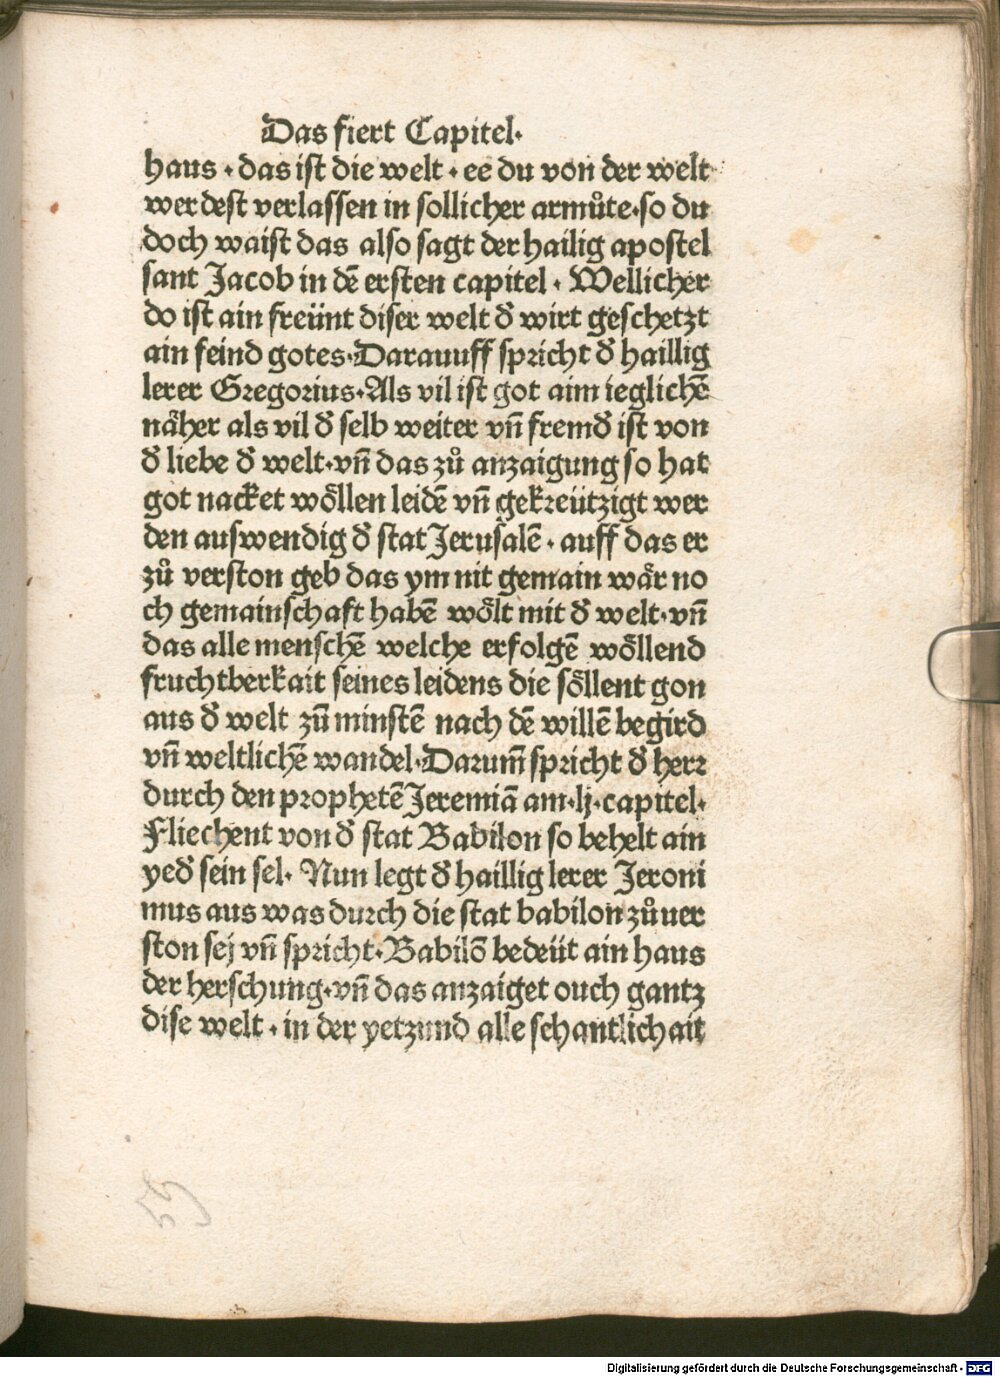 Das fiert Capitel·
haus · das ist die welt · ee du von der welt
werdest verlassen in sollicher armůte·so du
doch waist das also sagt der hailig apostel
sant Jacob in dē ersten capitel · Wellicher
do ist ain freünt diser welt đ wirt geschetzt
ain feind gotes·Darauuff spricht đ haillig
lerer Gregorius·Als vil ist got aim ieglichē
nåher als vil đ selb weiter vn̄ fremđ ist von
đ liebe đ welt·vn̄ das zů anzaigung so hat
got nacket wöllen leidē vn̄ gekreützigt wer
den auswendig đ stat Jerusalē · auff das er
zů verston geb das ym nit gemain wår no
ch gemainschaft habē wölt mit đ welt·vn̄
das alle menschē welche erfolgē wöllend
fruchtberkait seines leidens die söllent gon
aus đ welt zū minstē nach dē willē begird
vn̄ weltlichē wandel·Darum̄ spricht đ herr
durch den prophetē Jeremiā am·lj·capitel·
Fliechent von đ stat Babilon so behelt ain
yeđ sein sel· Nun legt đ haillig lerer Jeroni
mus aus was durch die stat babilon zůuer
ston sej vn̄ spricht·Babilō bedeüt ain haus
der herschung·vn̄ das anzaiget ouch gantz
dise welt · in der yetzund alle schantlichait
Digitalisierung gefördert durch die Deutsche Forschungsgemeinschaft - DFG